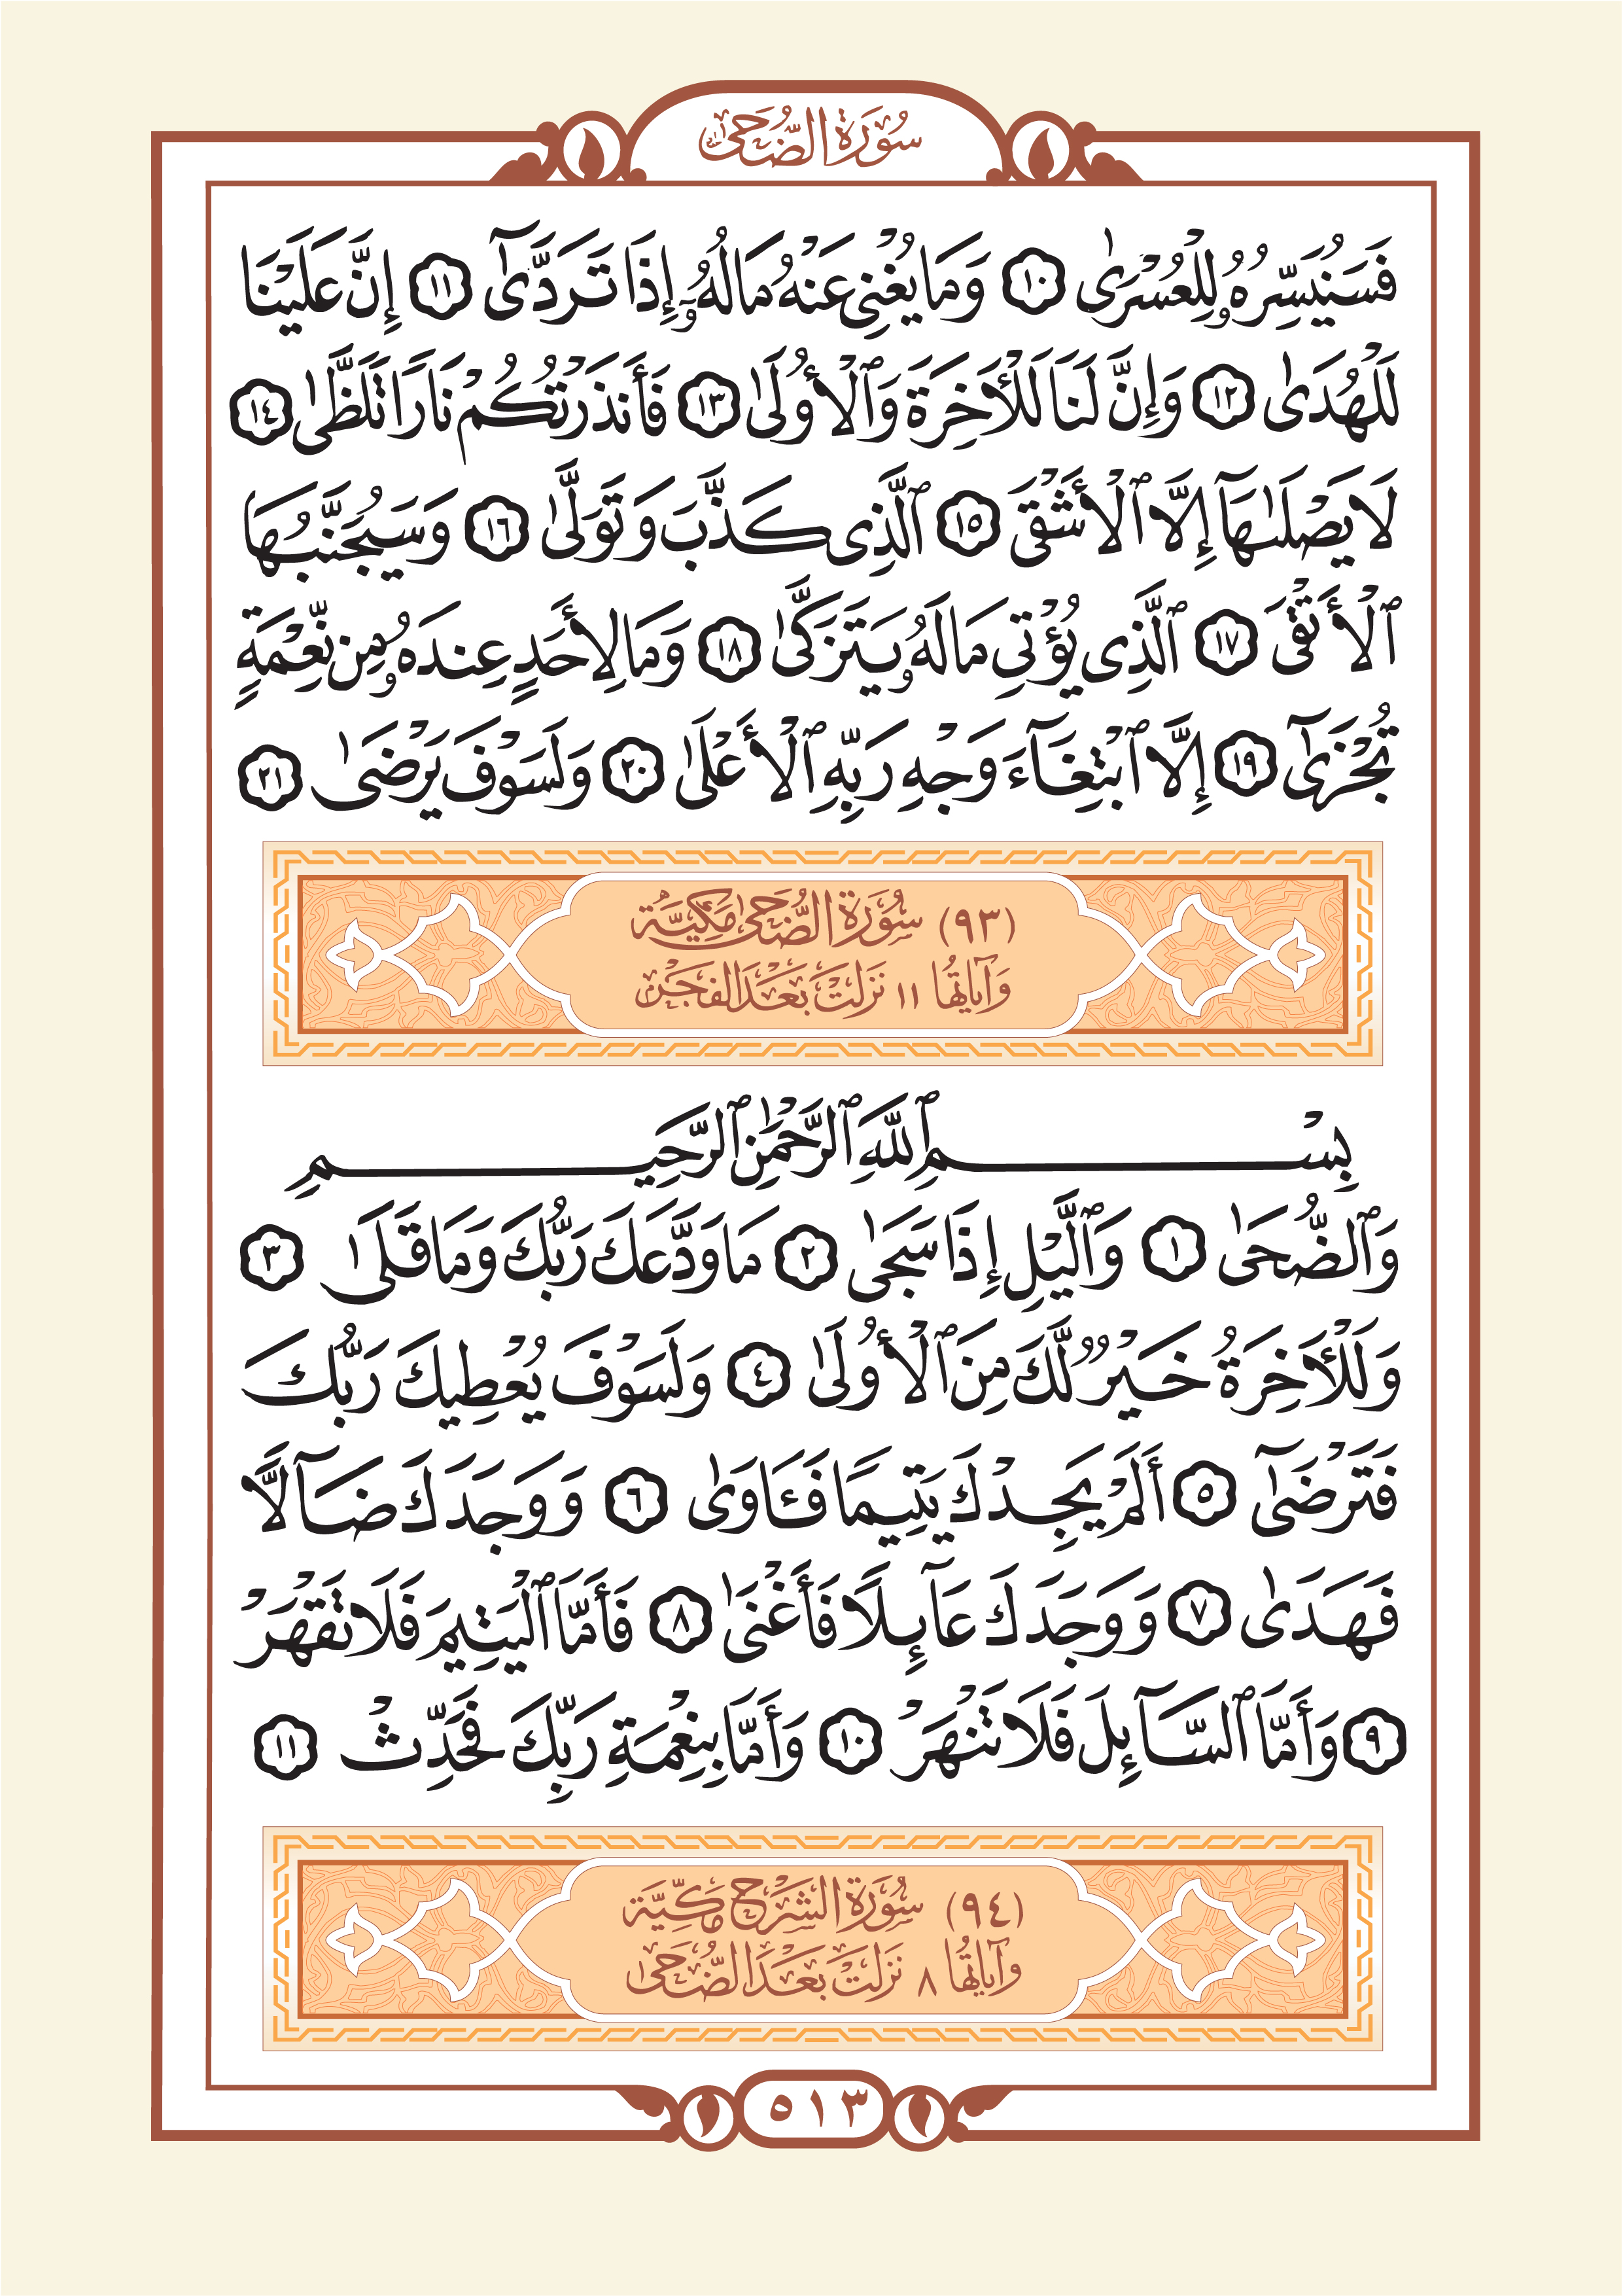 سُورَةُ الضُّحَىٰ
فَسَنُيَسِّرُهُۥ لِلْعُسْرَىٰ ١٠ وَمَا يُغْنِى عَنْهُ مَالُهُۥٓ إِذَا تَرَدَّىٰٓ ١١ إِنَّ عَلَيْنَا
لَلْهُدَىٰ ١٢ وَإِنَّ لَنَا لَلْأَخِرَةَ وَٱلْأُولَىٰ ١٣ فَأَنذَرْتُكُمْ نَارًا تَلَظَّىٰ ١٤
لَا يَصْلَىٰهَآ إِلَّا ٱلْأَشْقَى ١٥ ٱلَّذِى كَذَّبَ وَتَوَلَّىٰ ١٦ وَسَيُجَنَّبُهَا
ٱلْأَتْقَى ١٧ ٱلَّذِى يُؤْتِى مَالَهُۥ يَتَزَكَّىٰ ١٨ وَمَا لِأَحَدٍ عِندَهُۥ مِن نِّعْمَةٍ
تُجْزَىٰٓ ١٩ إِلَّا ٱبْتِغَآءَ وَجْهِ رَبِّهِ ٱلْأَعْلَىٰ ٢٠ وَلَسَوْفَ يَرْضَىٰ ٢١
(٩٣) سُورَةُ الضُّحَىٰ مَكِّيَّة
وَآيَاتُهَا ١١ نَزَلَتْ بَعْدَ الفَجْرِ
بِسْمِ ٱللَّهِ ٱلرَّحْمَٰنِ ٱلرَّحِيمِ
وَٱلضُّحَىٰ ١ وَٱلَّيْلِ إِذَا سَجَىٰ ٢ مَا وَدَّعَكَ رَبُّكَ وَمَا قَلَىٰ ٣
وَلَلْأَخِرَةُ خَيْرٌ لَّكَ مِنَ ٱلْأُولَىٰ ٤ وَلَسَوْفَ يُعْطِيكَ رَبُّكَ
فَتَرْضَىٰٓ ٥ أَلَمْ يَجِدْكَ يَتِيمًا فَـَٔاوَىٰ ٦ وَوَجَدَكَ ضَآلًّا
فَهَدَىٰ ٧ وَوَجَدَكَ عَآئِلًا فَأَغْنَىٰ ٨ فَأَمَّا ٱلْيَتِيمَ فَلَا تَقْهَرْ
٩ وَأَمَّا ٱلسَّآئِلَ فَلَا تَنْهَرْ ١٠ وَأَمَّا بِنِعْمَةِ رَبِّكَ فَحَدِّثْ ١١
(٩٤) سُورَةُ الشَّرْحِ مَكِّيَّة
وَآيَاتُهَا ٨ نَزَلَتْ بَعْدَ الضُّحَىٰ
٥١٣